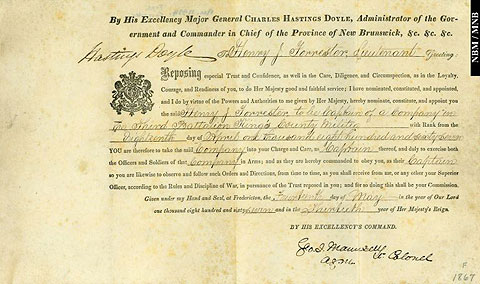 By His Excellency Major General CHARLES HASTINGS DOYLE, Administrator of the Gov-
ernment and Commander in Chief of the Province of New Brunswick, &c. &c. &c.
Hastings Doyle To Henry J. Forrester Lieutenant Greeting:
Reposing especial Trust and Confidence, as well in the Care, Diligence, and Circumspection, as in the Loyalty,
Courage, and Readiness of you, to do Her Majesty good and faithful service; I have nominated, constituted, and appointed,
and I do by virtue of the Powers and Authorities to me given by Her Majesty, hereby nominate, constitute, and appoint you
the said Henry J. Forrester to be Captain of a Company in
the Third Battalion Kings County Militia with Rank from the
Eighteenth of April one thousand eight hundred and sixty seven
YOU are therefore to take the said Company into your Charge and Care, as Captain thereof, and duly to exercise both
the Officers and Soldiers of that Company in Arms; and as they are hereby commanded to obey you, as their Captain
so you are likewise to observe and follow such Orders and Directions, from time to time, as you shall receive from me, or any other your Superior
Officer, according to the Rules and Discipline of War, in pursuance of the Trust reposed in you; and for so doing this shall be your Commission.
Given under my Hand and Seal, at Fredericton, the Fourteenth day of May in the year of our Lord
one thousand eight hundred and sixty seven and in the Thirtieth year of Her Majesty's Reign.
BY HIS EXCELLENCY'S COMMAND.
Geo. J. Maunsell Lt Colonel
A.G.M.
F
1867
NBM / MNB